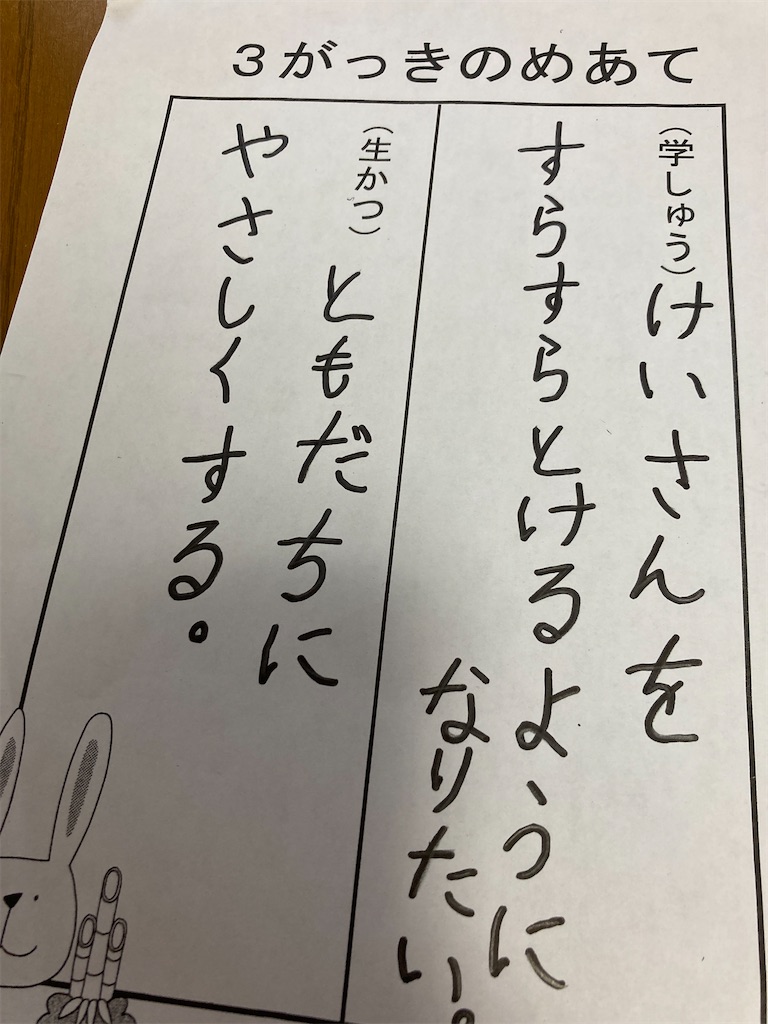 3がっきのめあて
(学しゅう)けいさんを
すらすらとけるように
なりたい。
(生かつ)ともだちに
やさしくする。